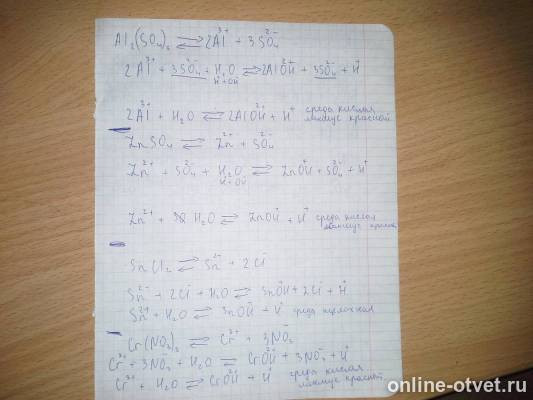 Al₂(SO₄)₃ ⇄ 2Al³⁺ + 3SO₄²⁻
2Al³⁺ + 3SO₄²⁻ + H₂O ⇄ 2AlOH²⁺ + 3SO₄²⁻ + H⁺
H⁺+OH⁻
2Al³⁺ + H₂O ⇄ 2AlOH²⁺ + H⁺ среда кислая
лакмус красной
ZnSO₄ ⇄ Zn²⁺ + SO₄²⁻
Zn²⁺ + SO₄²⁻ + H₂O ⇄ ZnOH⁺ + SO₄²⁻ + H⁺
H⁺+OH⁻
Zn²⁺ + H₂O ⇄ ZnOH⁺ + H⁺ среда кислая
лакмус красн
SnCl₂ ⇄ Sn²⁺ + 2Cl⁻
Sn²⁺ + 2Cl⁻ + H₂O ⇄ SnOH⁺ + 2Cl⁻ + H⁺
Sn²⁺ + H₂O ⇄ SnOH⁺ + H⁺ среда
Cr(NO₃)₃ ⇄ Cr³⁺ + 3NO₃⁻
Cr³⁺ + 3NO₃⁻ + H₂O ⇄ CrOH²⁺ + 3NO₃⁻ + H⁺
Cr³⁺ + H₂O ⇄ CrOH²⁺ + H⁺ среда кислая
лакмус красной
online-otvet.ru